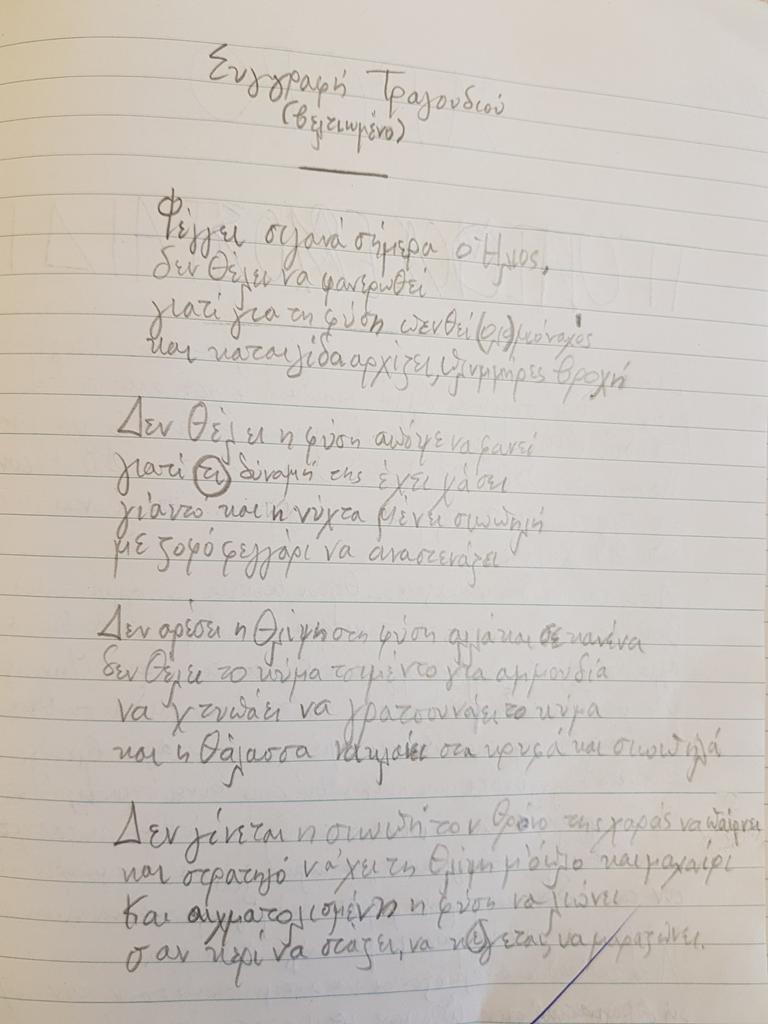 Συγγραφή Τραγουδιού
(βελτιωμένο)
Φέγγει σιγανά σήμερα ο Ήλιος,
δεν θέλει να φανερωθεί
γιατί για τη φύση πενθεί μόναχος
και καταιγίδα αρχίζει, πλημμήρες βροχή
Δεν θέλει η φύση απόψε να φανεί
γιατί τι δύναμή της έχει χάσει
γι'αυτό και η νύχτα μένει σιωπηλή
με ζοφό φεγγάρι να αναστενάζει
Δεν αρέσει η θλίψη στη φύση αλλά και σε κανένα
δεν θέλει το κύμα τσιμέντο για αμμουδιά
να χτυπάει να γρατσουνάει το κύμα
και η θάλασσα να κλαίει στα κρυφά και σιωπηλά
Δεν γίνεται η σιωπή τον θρόνο της χαράς να παίρνει
και στρατηγό νά'χει τη θλίψη μ'όπλο και μαχαίρι
Και αιχματολισμένη η φύση να λιώνει
σαν κερί να στάζει, να κέγεται, να μαραζώνει.